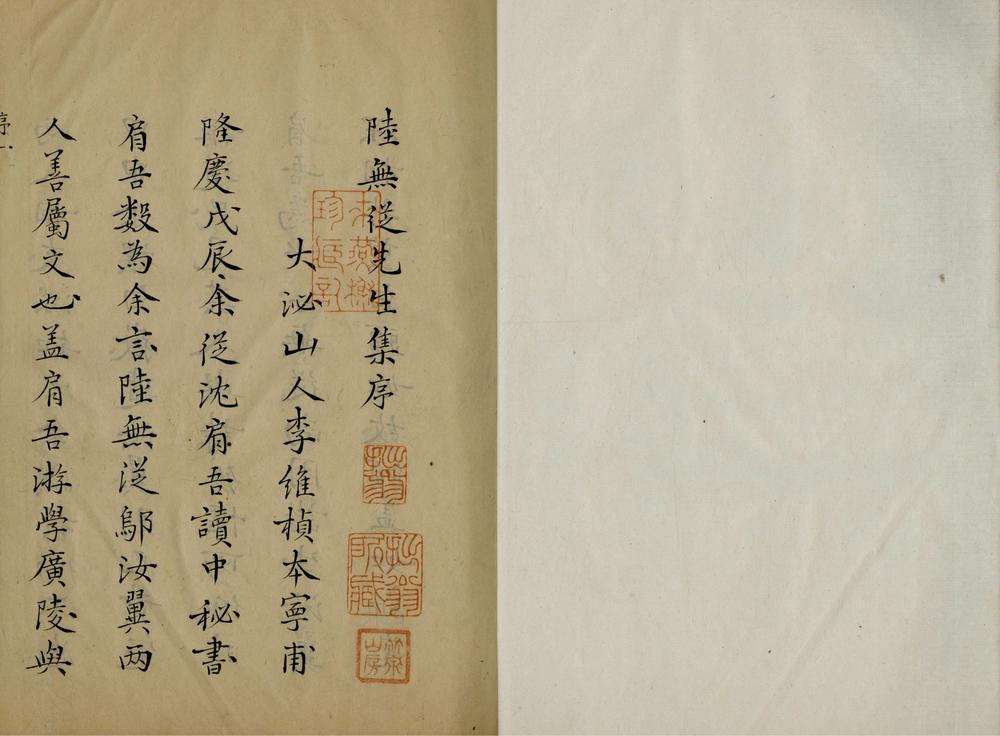 陸無從先生集序
大泌山人李維楨本寧甫
隆慶戊辰余從沈肩吾讀中秘書
肩吾數為余言陸無從鄔汝翼两
人善屬文也盖肩吾游學廣陵與
序一